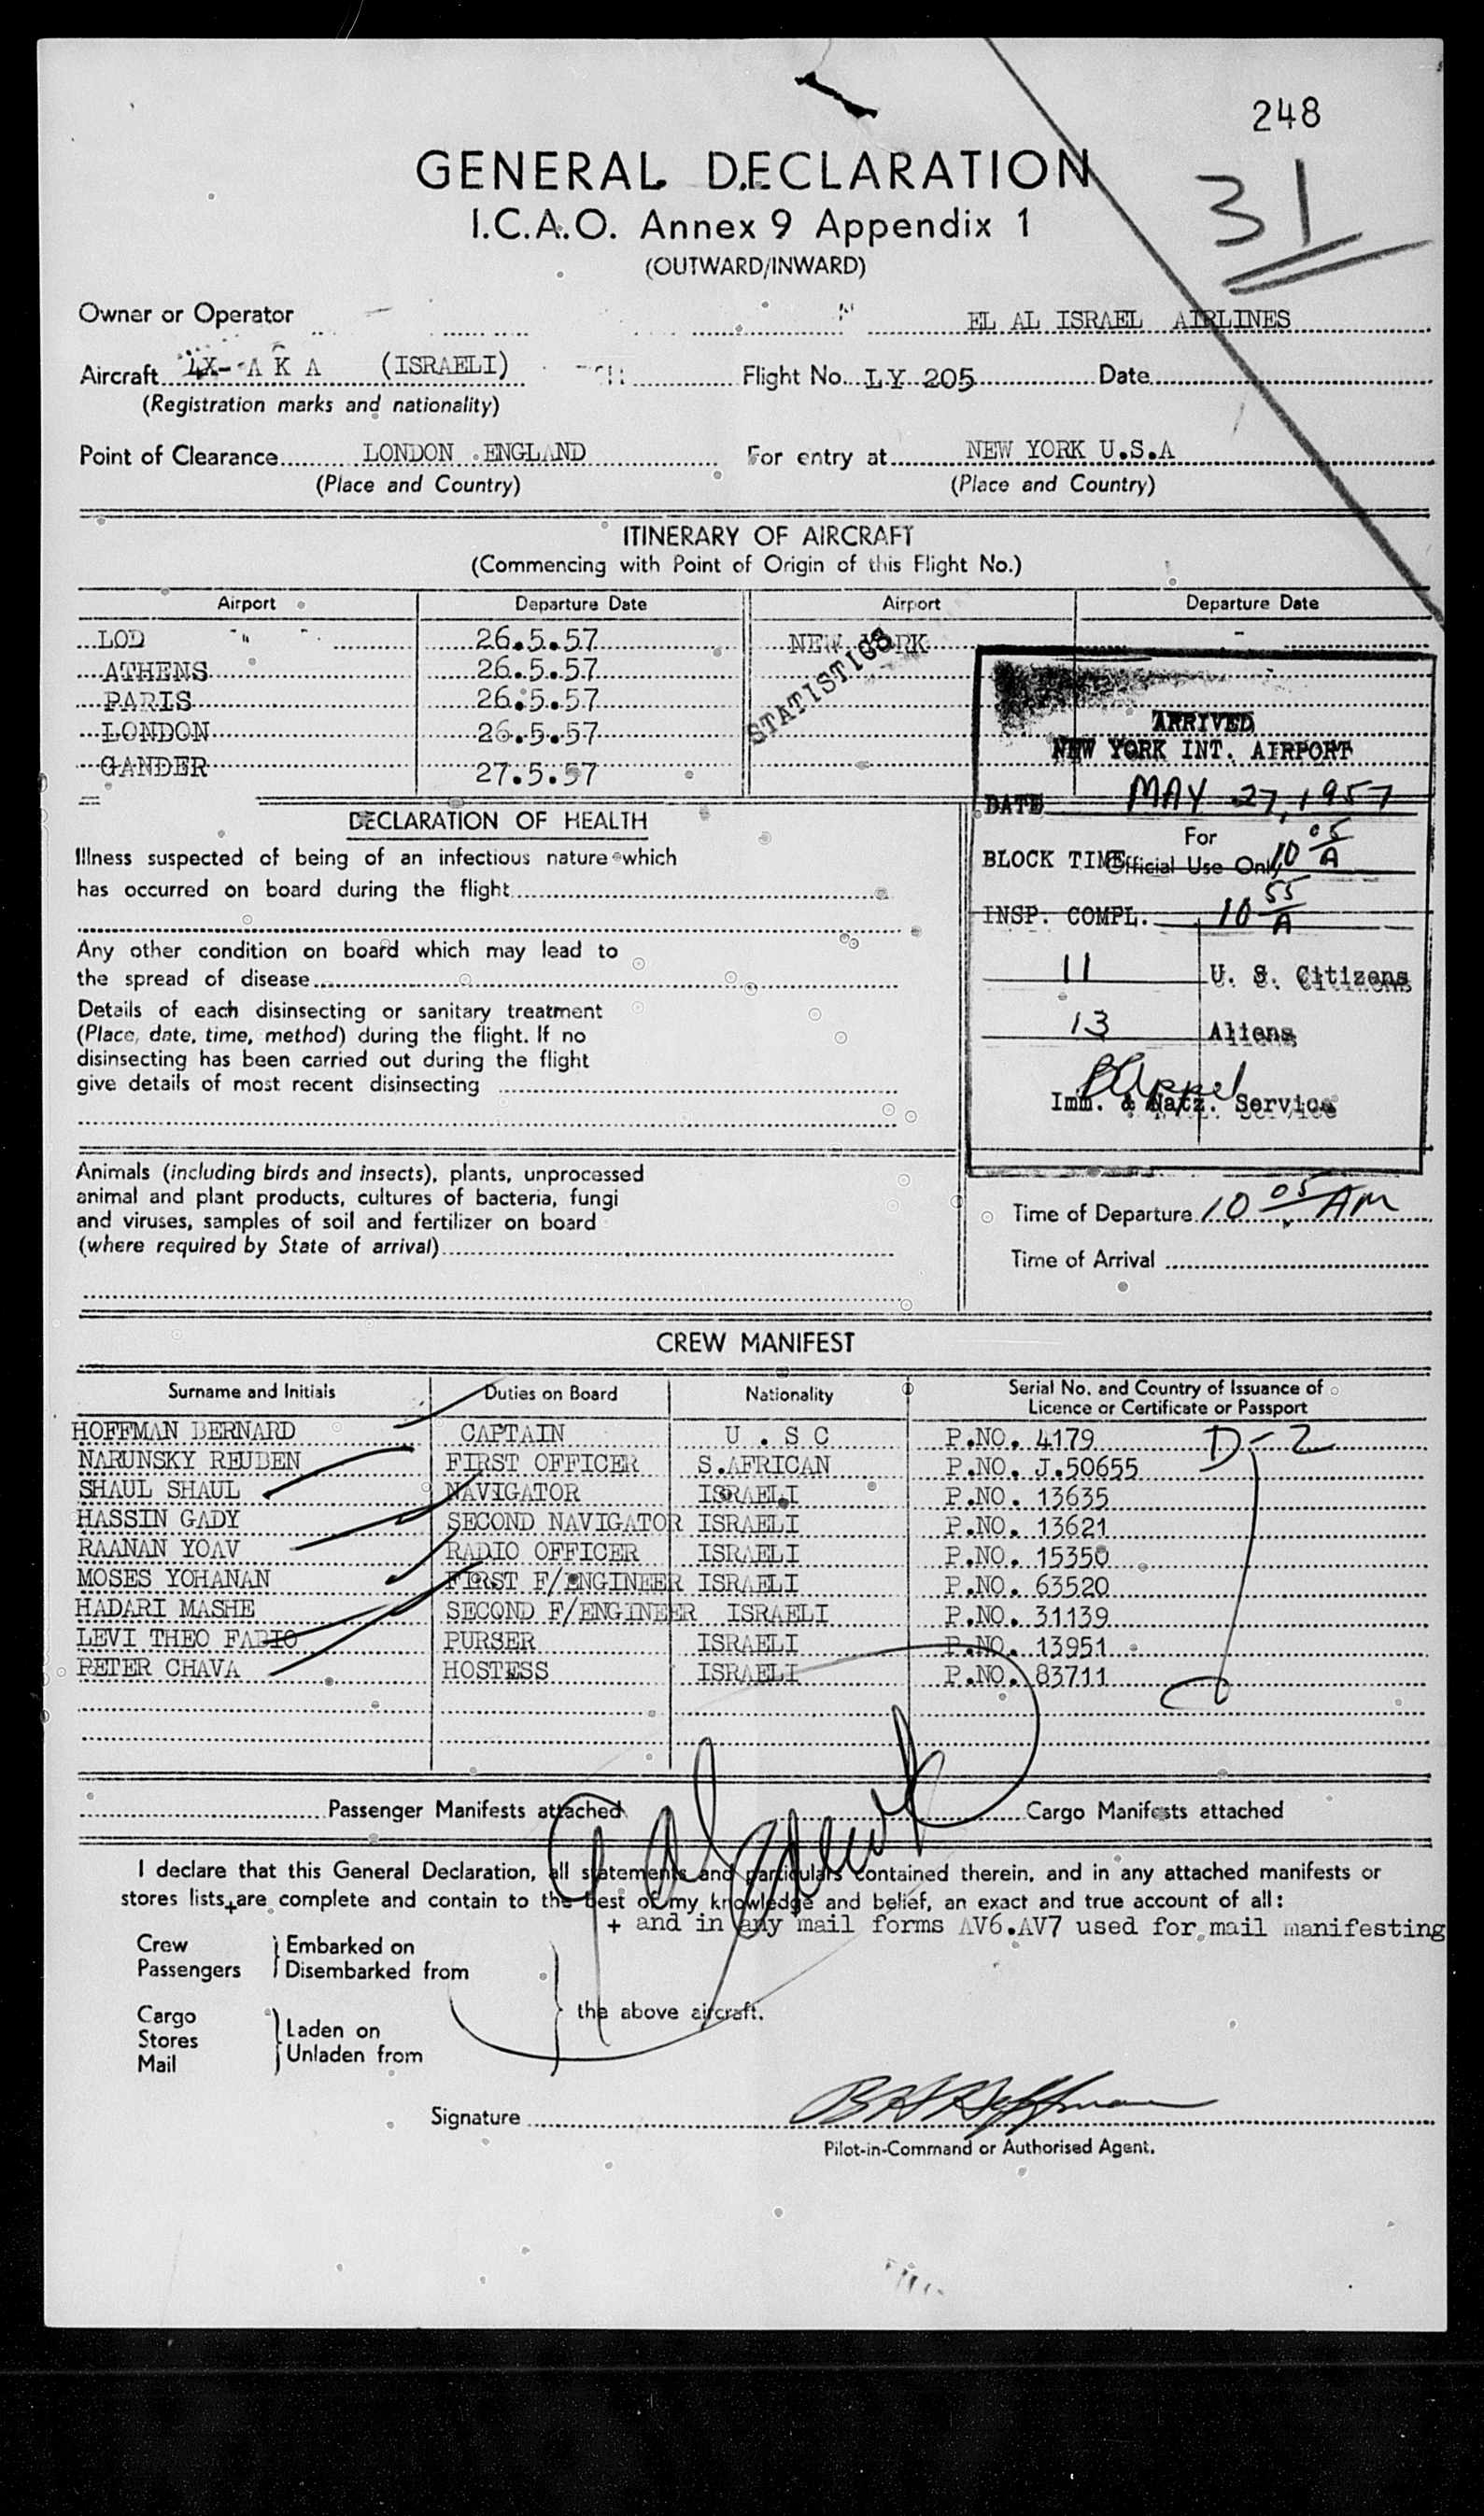 248
31
GENERAL DECLARATION
I.C.A.O. Annex 9 Appendix 1
(OUTWARD/INWARD)
Owner or Operator EL AL ISRAEL AIRLINES
Aircraft 4X- A K A (ISRAELI) Flight No. LY 205 Date
(Registration marks and nationality)
Point of Clearance LONDON ENGLAND For entry at NEW YORK U.S.A
(Place and Country) (Place and Country)
ITINERARY OF AIRCRAFT
(Commencing with Point of Origin of this Flight No.)
Airport Departure Date Airport Departure Date
LOD 26.5.57 NEW YORK -
ATHENS 26.5.57
PARIS 26.5.57
LONDON 26.5.57
GANDER 27.5.57
STATISTICS
ARRIVED
NEW YORK INT. AIRPORT
DATE MAY 27, 1957
For
Official Use Only
BLOCK TIME 10 05 A
INSP. COMPL. 10 55 A
11 U. S. Citizens
13 Aliens
Imm. & Natz. Service
DECLARATION OF HEALTH
Illness suspected of being of an infectious nature which
has occurred on board during the flight
Any other condition on board which may lead to
the spread of disease
Details of each disinsecting or sanitary treatment
(Place, date, time, method) during the flight. If no
disinsecting has been carried out during the flight
give details of most recent disinsecting
Animals (including birds and insects), plants, unprocessed
animal and plant products, cultures of bacteria, fungi
and viruses, samples of soil and fertilizer on board
(where required by State of arrival)
Time of Departure 10 05 AM
Time of Arrival
CREW MANIFEST
Surname and Initials Duties on Board Nationality Serial No. and Country of Issuance of
Licence or Certificate or Passport
HOFFMAN BERNARD CAPTAIN U . S C P.NO. 4179 D-2
NARUNSKY REUBEN FIRST OFFICER S.AFRICAN P.NO. J.50655
SHAUL SHAUL NAVIGATOR ISRAELI P.NO. 13635
HASSIN GADY SECOND NAVIGATOR ISRAELI P.NO. 13621
RAANAN YOAV RADIO OFFICER ISRAELI P.NO. 15350
MOSES YOHANAN FIRST F/ENGINEER ISRAELI P.NO. 63520
HADARI MASHE SECOND F/ENGINEER ISRAELI P.NO. 31139
LEVI THEO FABIO PURSER ISRAELI P.NO. 13951
PETER CHAVA HOSTESS ISRAELI P.NO. 83711
Passenger Manifests attached Cargo Manifests attached
I declare that this General Declaration, all statements and particulars contained therein, and in any attached manifests or
stores lists,+are complete and contain to the best of my knowledge and belief, an exact and true account of all:
+ and in any mail forms AV6.AV7 used for mail manifesting
Crew Embarked on
Passengers Disembarked from
the above aircraft.
Cargo
Stores Laden on
Mail Unladen from
Signature B H Hoffman
Pilot-in-Command or Authorised Agent.